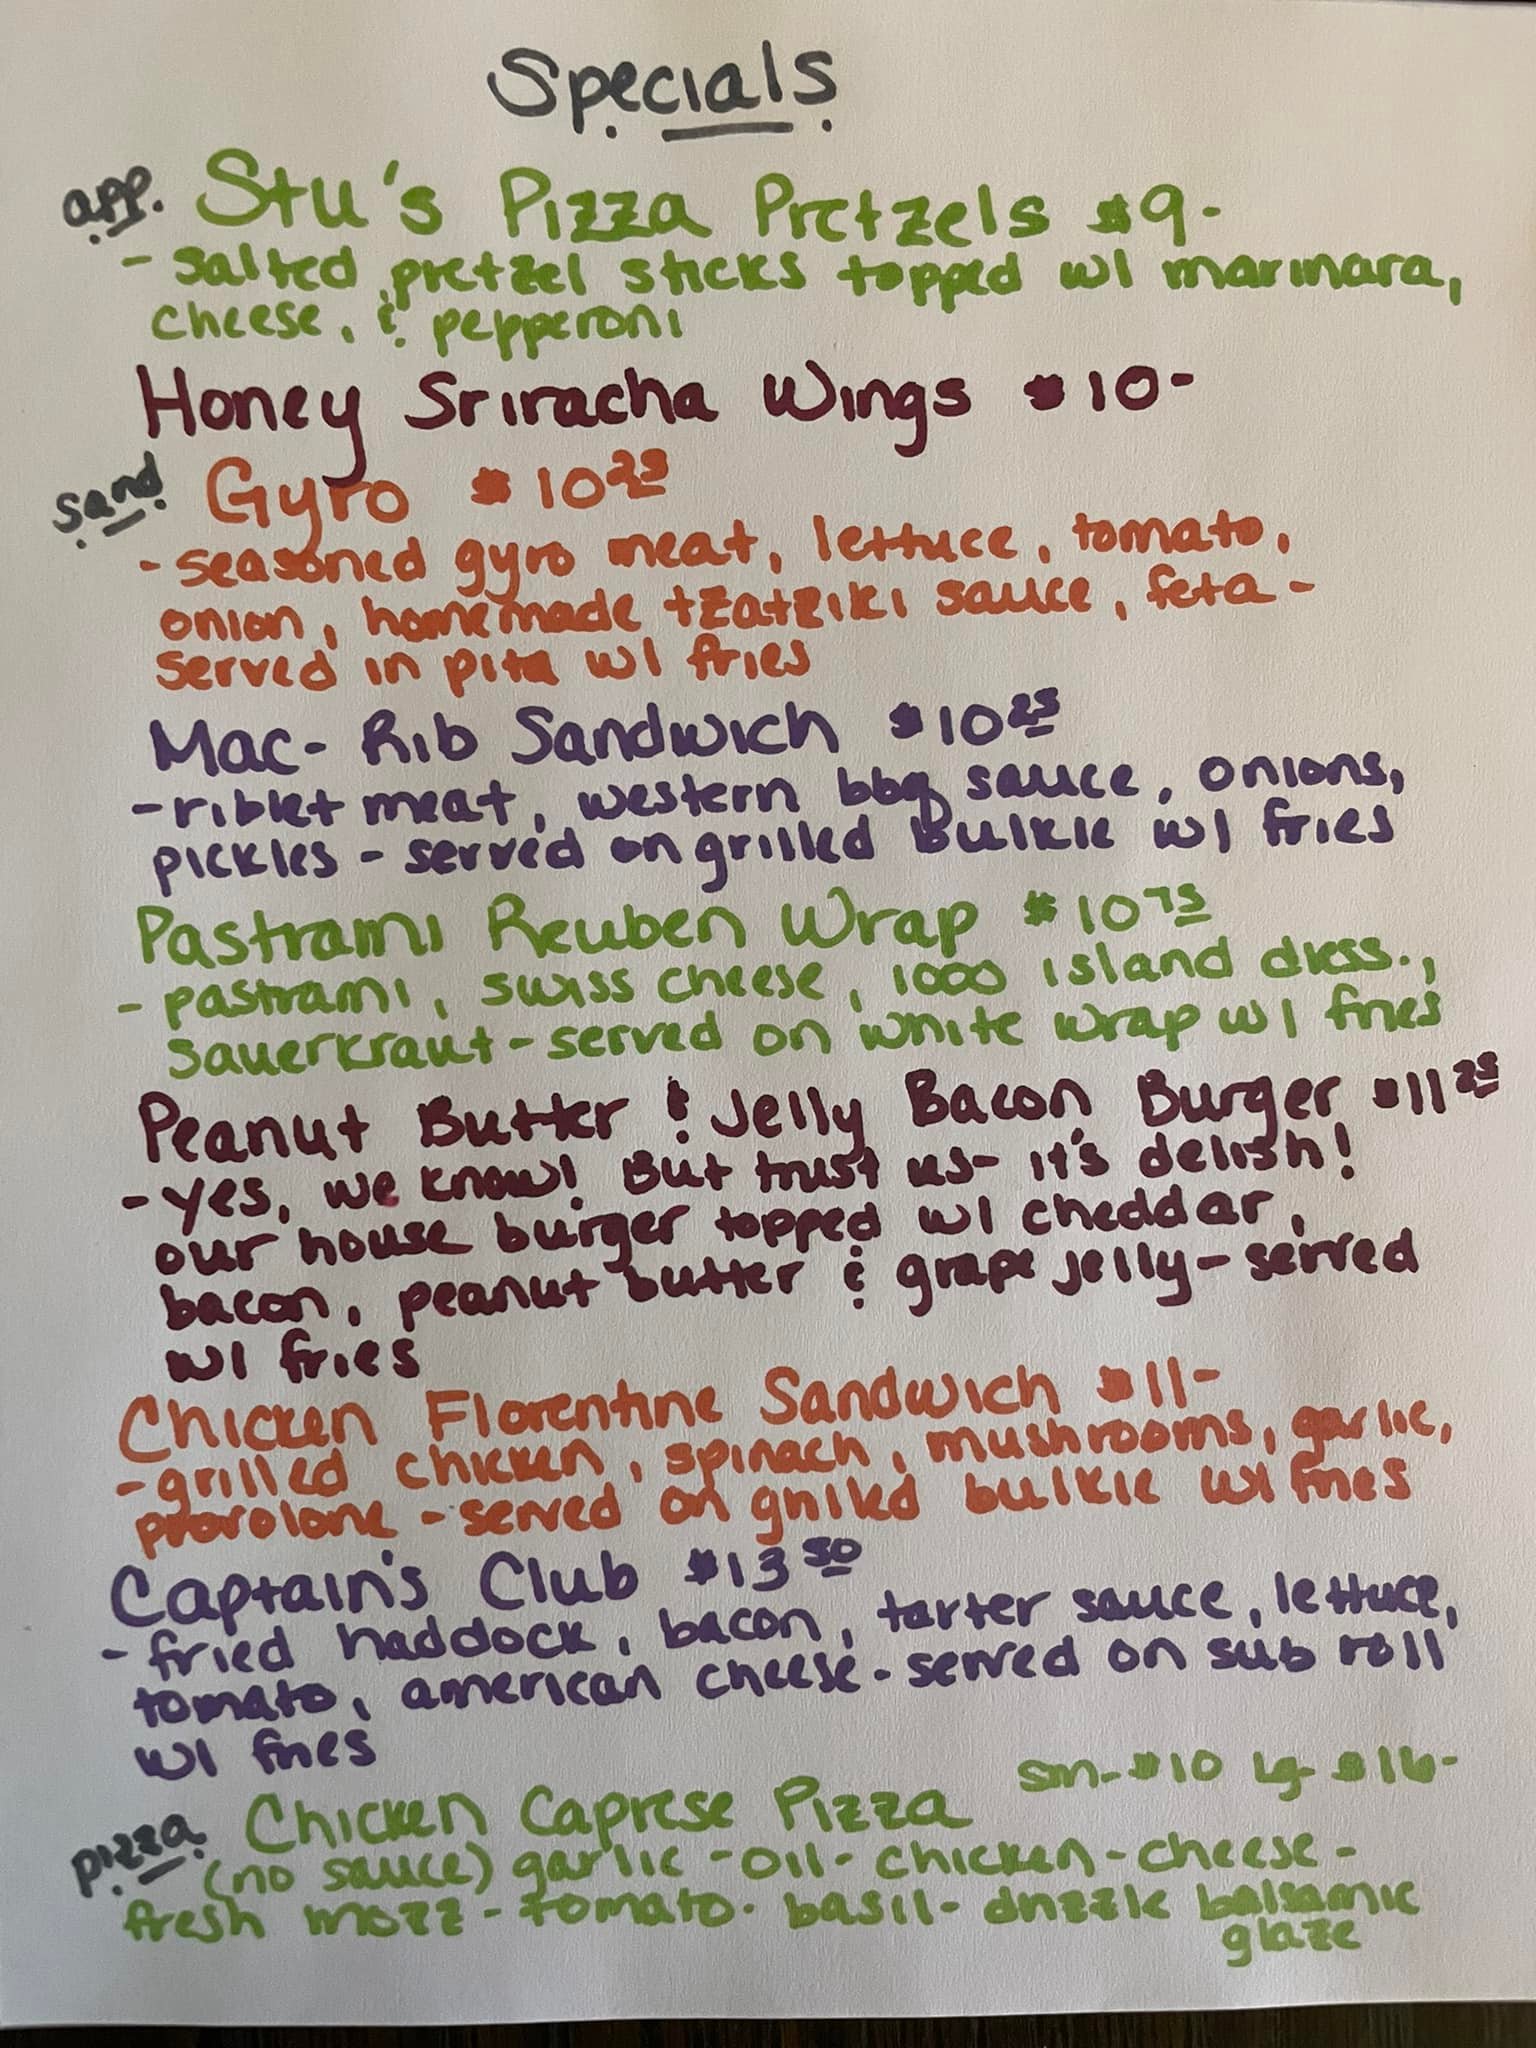 Specials
app. Stu's Pizza Pretzels $9-
- salted pretzel sticks topped w/ marinara,
cheese, & pepperoni
Honey Sriracha Wings $10-
sand Gyro $10 25
- seasoned gyro meat, lettuce, tomato,
onion, homemade tzatziki sauce, feta -
served in pita w/ fries
Mac-Rib Sandwich $10 25
- riblet meat, western bbq sauce, onions,
pickles - served on grilled bulkie w/ fries
Pastrami Reuben Wrap $10 75
- pastrami, swiss cheese, 1000 island dress.,
sauerkraut - served on white wrap w/ fries
Peanut Butter & Jelly Bacon Burger $11 25
- yes, we know! But trust us - it's delish!
our house burger topped w/ cheddar,
bacon, peanut butter & grape jelly - served
w/ fries
Chicken Florentine Sandwich $11-
- grilled chicken, spinach, mushrooms, garlic,
provolone - served on grilled bulkie w/ fries
Captain's Club $13 50
- fried haddock, bacon, tarter sauce, lettuce,
tomato, american cheese - served on sub roll
w/ fries
sm- $10 lg- $16-
pizza Chicken Caprese Pizza
(no sauce) garlic - oil - chicken - cheese -
fresh mozz - tomato - basil - drizzle balsamic
glaze